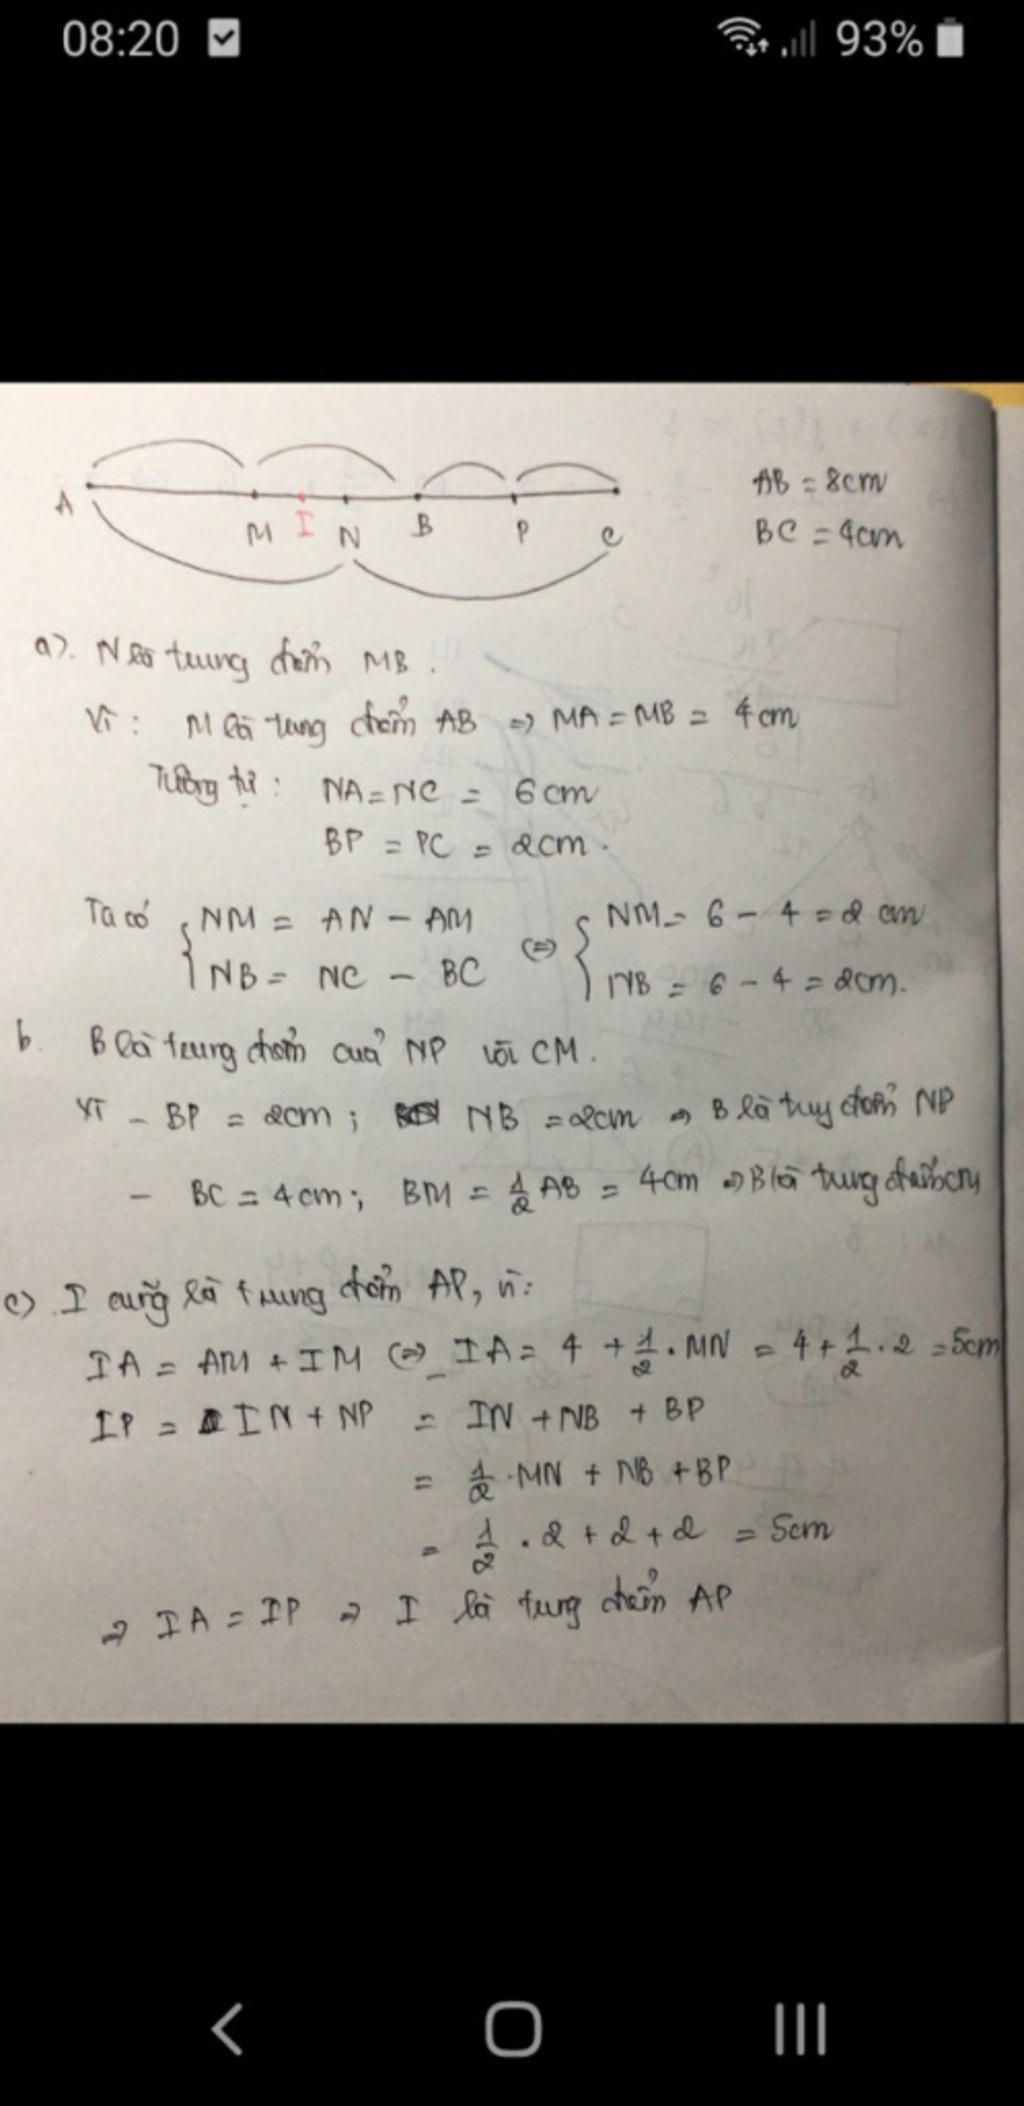 08:20 93%
AB = 8cm
BC = 4cm
A M I N B P C
a). N là trung điểm MB.
Vì: M là trung điểm AB => MA = MB = 4cm
Tương tự: NA = NC = 6cm
BP = PC = 2cm.
Ta có { NM = AN - AM <=> { NM = 6 - 4 = 2 cm
NB = NC - BC NB = 6 - 4 = 2cm.
b. B là trung điểm của NP với CM.
Vì - BP = 2cm; NB = 2cm => B là tuy điểm NP
- BC = 4cm; BM = 1/2 AB = 4cm => B là trung điểm CM
c) I cũng là trung điểm AP, vì:
IA = AM + IM <=> IA = 4 + 1/2 . MN = 4 + 1/2 . 2 = 5cm
IP = IN + NP = IN + NB + BP
= 1/2 . MN + NB + BP
= 1/2 . 2 + 2 + 2 = 5cm
=> IA = IP => I là trung điểm AP